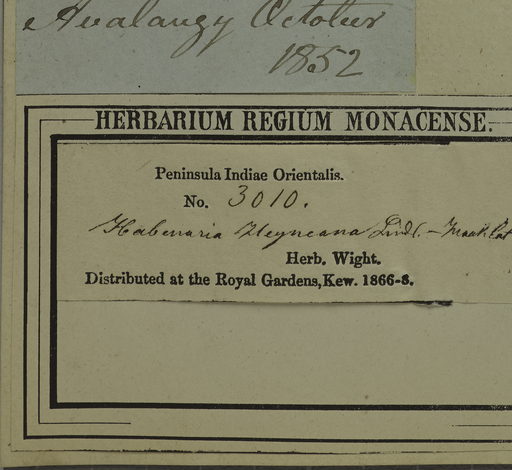 Avalangy October
1852
HERBARIUM REGIUM MONACENSE.
Peninsula Indiae Orientalis.
No. 3010.
Habenaria Heyneana Lindl. -
Herb. Wight.
Distributed at the Royal Gardens, Kew. 1866-8.